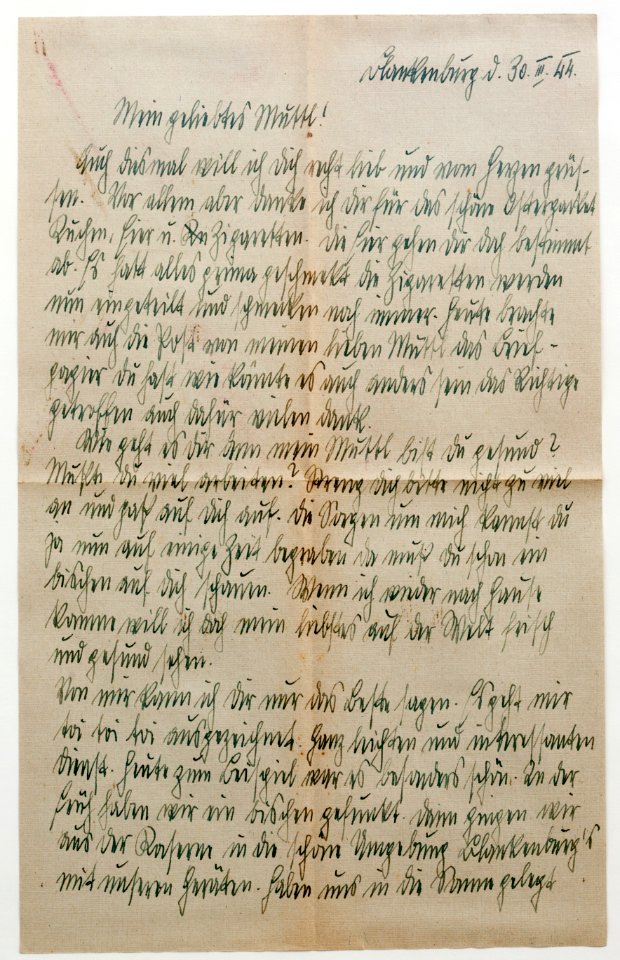 Blankenburg d. 30. III. 44.
Mein geliebtes Muttl!
Auch diesmal will ich Dich recht lieb und vom Herzen grüs-
sen. Vor allem aber danke ich dir für das schöne Osterpacket
Kuchen, Eier u. Zigaretten. Die Eier gehen Dir doch bestimmt
ab. Es hatt alles prima geschmekt die Zigaretten werden
nun eingeteilt und schmecken noch immer. Heute brachte
mir auch die Post von meinen lieben Muttl das Brief-
papier du hast wie könnte es auch anders sein das Richtige
getroffen auch dafür vielen dank.
Wie geht es dir denn mein Muttl bist du gesund?
Mußt du viel arbeiten? Streng dich bitte nicht zu viel
an und paß auf dich auf. Die Sorgen um mich kannst du
ja nun auf einige Zeit begraben da mußt du schon ein
bischen auf dich schauen. Wenn ich wieder nach Hause
komme will ich doch mein liebstes auf der Welt frisch
und gesund sehen.
Von mir kann ich dir nur das beste sagen. Es geht mir
toi toi toi ausgezeichnet. Ganz leichten und interessanten
dienst. Heute zum Beispiel war es besonders schön. In der
Früh haben wir ein bischen gefunkt. dann gingen wir
aus der Kaserne in die schöne Umgebung Blankenburg's
mit unseren Geräten. Haben uns in die Sonne gelegt